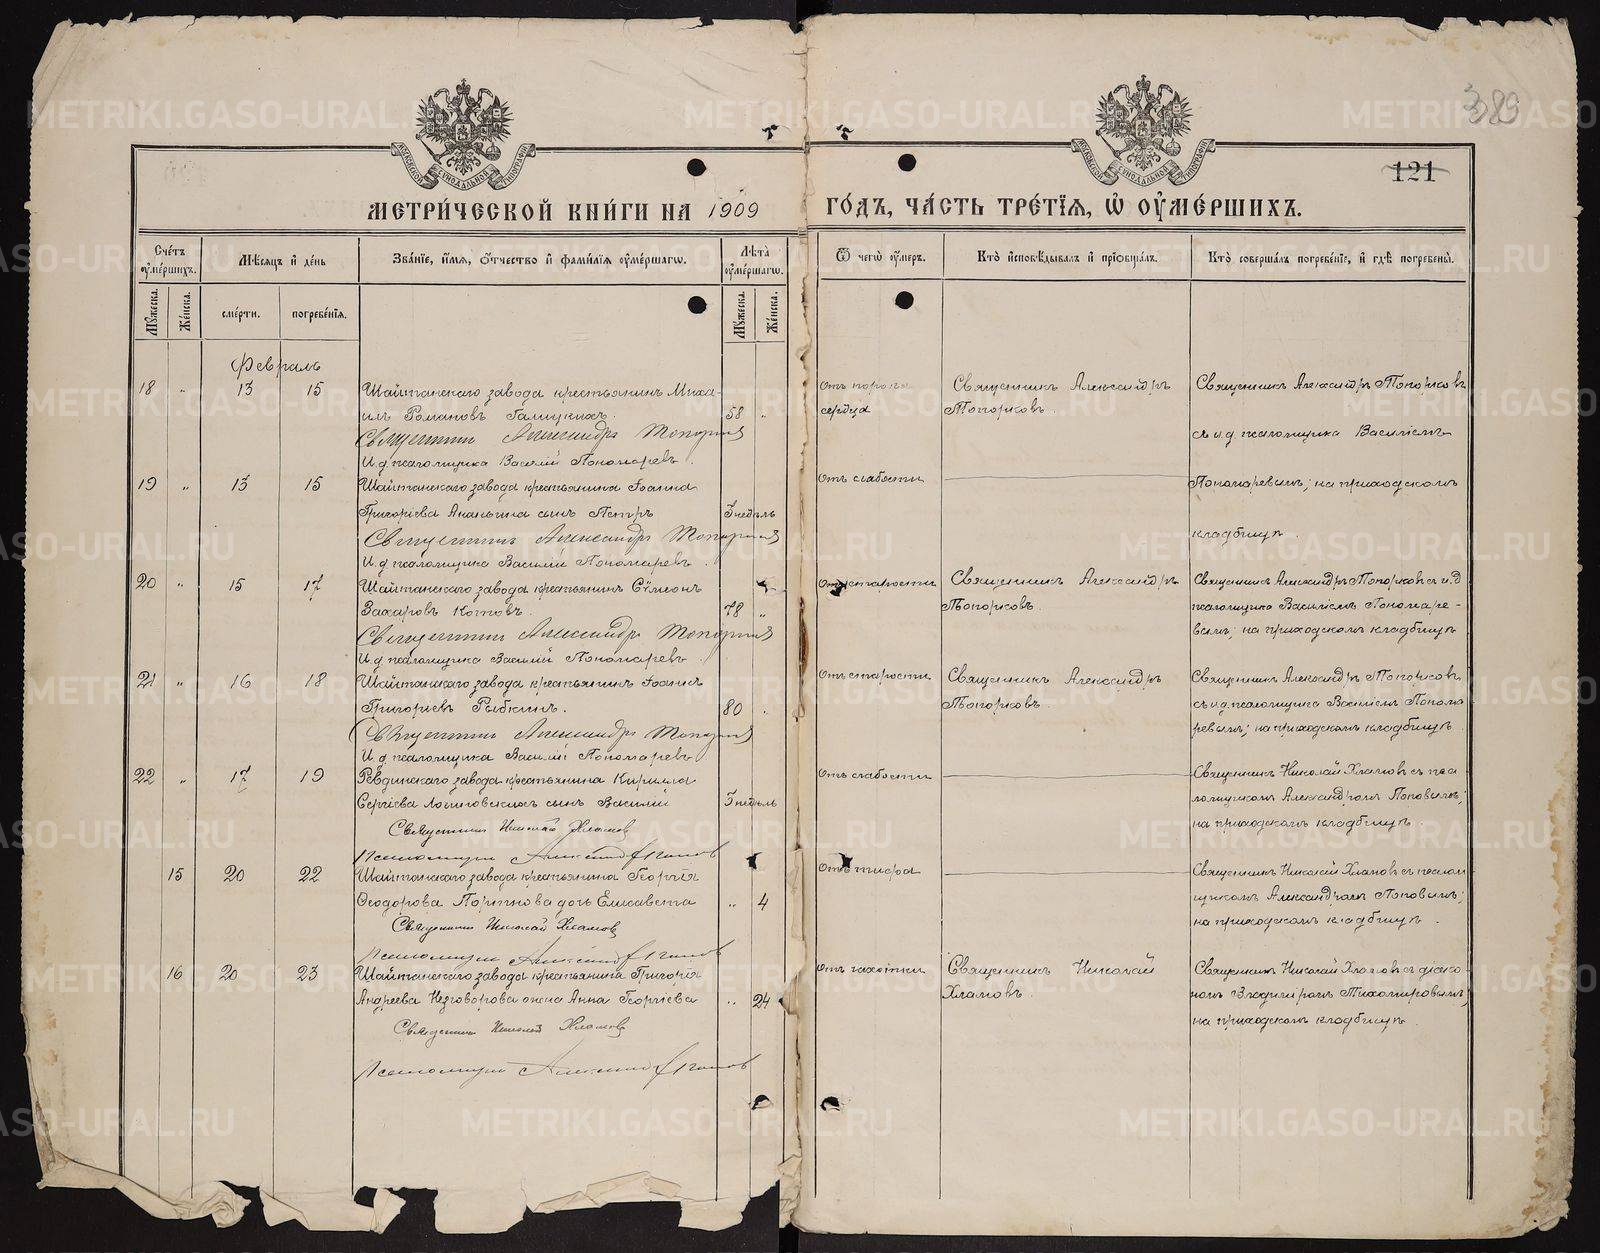 389
121
МЕТРИ́ЧЕСКОЙ КНИ́ГИ НА 1909
ГО́ДЪ, ЧА́СТЬ ТРЕ́ТІѦ, Ѡ ОУМЕ́РШИХЪ.
Сче́тъ оуме́ршихъ.
Мѣсяцъ и де́нь
Зва́ніе, и́мѧ, о́тчество и фами́лїѧ оуме́ршагѡ.
Лѣта̀ оуме́ршагѡ.
Ѿ чегѡ̀ оу́меръ.
Кто̀ исповѣ́дывалъ и прїобща́лъ.
Кто̀ соверша́лъ погребе́нїе, и гдѣ̀ погребены̀.
Му́жеска.
Же́нска.
сме́рти.
погребе́нїѧ.
Му́жеска.
Же́нска.
Февраль
18 „ 13 15 Шайтанскаго завода крестьянинъ Миха-
илъ Романовъ Галицкихъ. 58 „
Священникъ Александръ Топорковъ
И.д. псаломщика Василій Пономаревъ.
Отъ порока
сердца
Священникъ Александръ
Топорковъ.
Священникъ Александръ Топорковъ
съ и.д. псаломщика Василіемъ
19 „ 13 15 Шайтанскаго завода крестьянина Іоанна
Григоріева Ананьина сынъ Петръ 3 недѣль
Священникъ Александръ Топорковъ
И.д. псаломщика Василій Пономаревъ.
Отъ слабости
Пономаревымъ; на приходскомъ
кладбищѣ.
20 „ 15 17 Шайтанскаго завода крестьянинъ Сѵмеонъ
Захаровъ Котовъ. 78 „
Священникъ Александръ Топорковъ
И.д. псаломщика Василій Пономаревъ.
Отъ старости
Священникъ Александръ
Топорковъ.
Священникъ Александръ Топорковъ съ и.д.
псаломщика Василіемъ Пономаре-
вымъ; на приходскомъ кладбищѣ
21 „ 16 18 Шайтанскаго завода крестьянинъ Іоаннъ
Григорьевъ Рыбкинъ. 80 „
Священникъ Александръ Топорковъ
И.д. псаломщика Василій Пономаревъ
Отъ старости
Священникъ Александръ
Топорковъ.
Священникъ Александръ Топорковъ
съ и.д. псаломщика Василіемъ Понома-
ревымъ; на приходскомъ кладбищѣ.
22 „ 17 19 Ревдинскаго завода крестьянина Кирилла
Сергіева сынъ Василій 3 недѣль
Священникъ Николай Хламовъ
Псаломщикъ Александръ Поповъ
Отъ слабости
Священникъ Николай Хламовъ съ пса-
ломщикомъ Александромъ Поповымъ;
на приходскомъ кладбищѣ.
15 20 22 Шайтанскаго завода крестьянина Георгія
Ѳеодорова дочь Елисавета „ 4
Священникъ Николай Хламовъ
Псаломщикъ Александръ Поповъ
Отъ тифа
Священникъ Николай Хламовъ съ псалом-
щикомъ Александромъ Поповымъ;
на приходскомъ кладбищѣ.
16 20 23 Шайтанскаго завода крестьянина Григорія
Андреева Незговорова жена Анна Георгіева „ 24
Священникъ Николай Хламовъ
Псаломщикъ Александръ Поповъ
Отъ чахотки
Священникъ Николай
Хламовъ.
Священникъ Николай Хламовъ съ діако-
номъ Владиміромъ Тихомировымъ;
на приходскомъ кладбищѣ.
METRIKI.GASO-URAL.RU